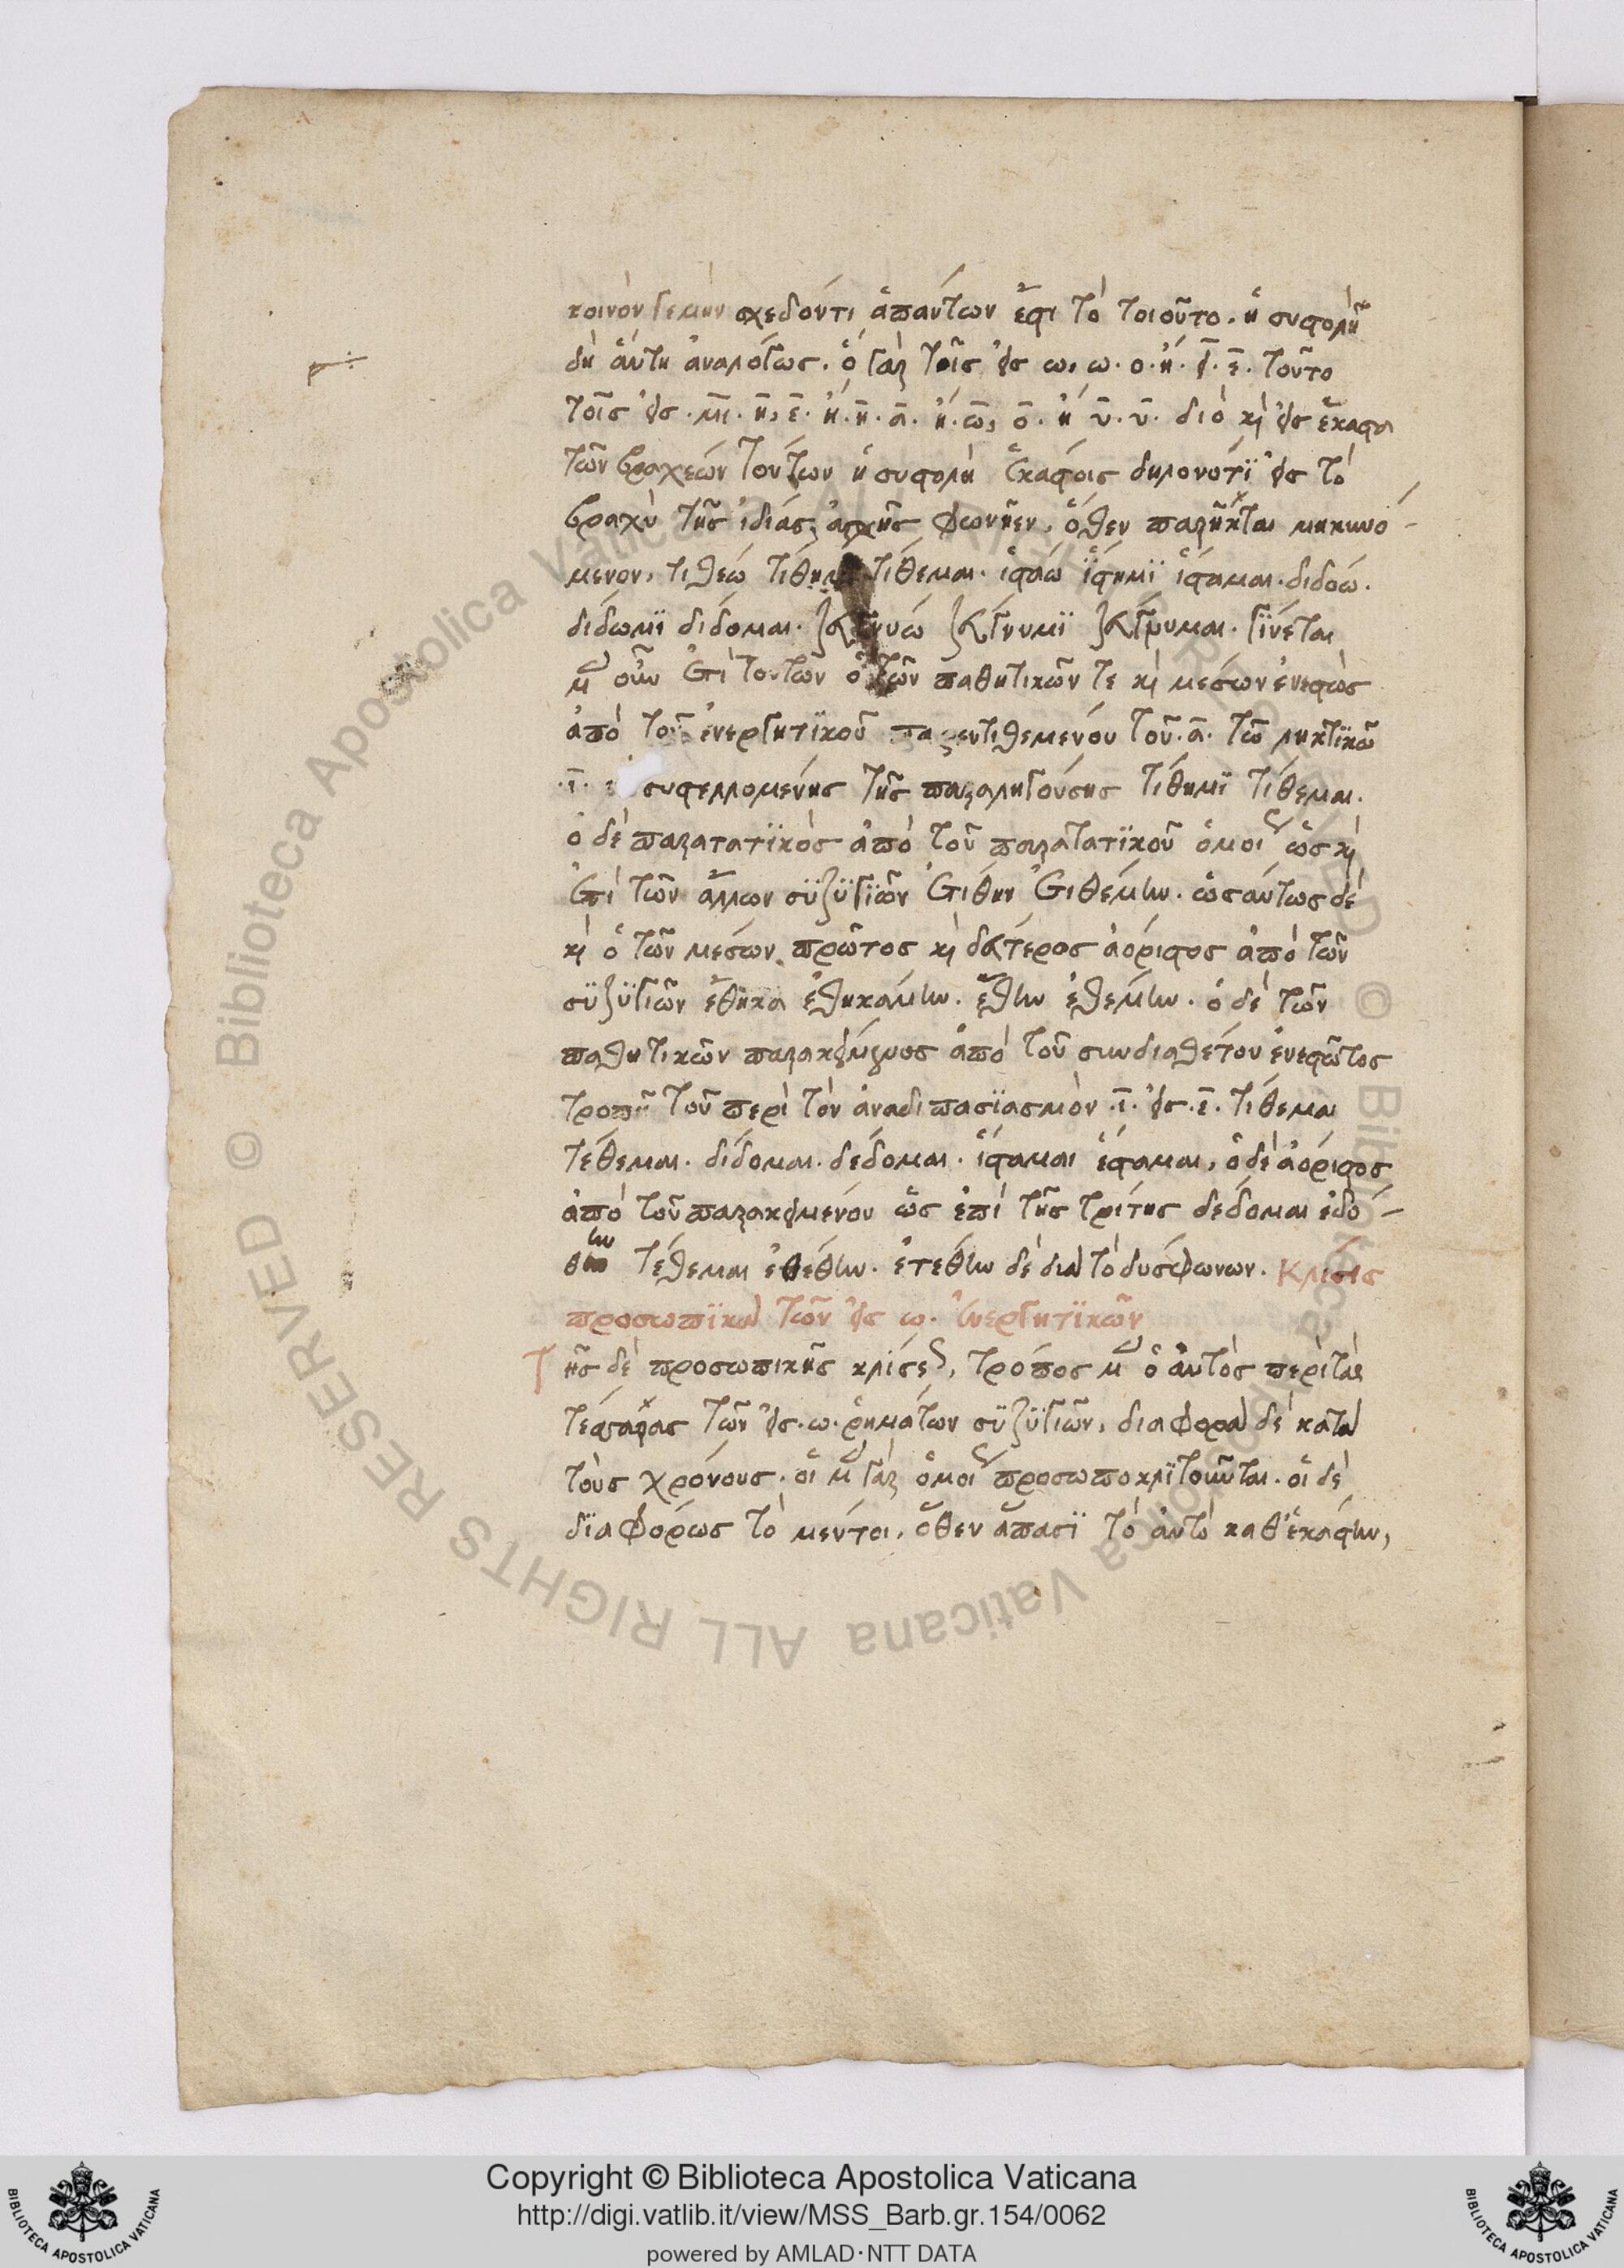 κοινὸν γεμὴν σχεδόντι ἁπάντων ἐστι τὸ τοιοῦτο. ἡ συστολὴ
δὴ ἅυτη ἀναλόγως. ὁ γὰρ τοῖς εἰς ω, ω. ο. ἢ. ε. τοῦτο
τοῖς εἰς. μι. η, ε. ἢ. η. α. ἢ. ω, ο. ἢ υ. υ. διὸ καὶ εἰς ἕκαστα
τῶν βραχεῶν τούτων ἡ συστολὴ ἑκάστοις δηλονότϊ εἰς τὸ
βραχὺ τῆς ἰδίας ἀρχῆς φωνῆεν, ὅθεν παρῆκται μηκυνό-
μενον, τιθέω τίθημι τίθεμαι. ἱστάω ἵστημϊ ἵσταμαι. διδόω.
δίδωμϊ δίδομαι. ζευγνυώ ζεύγνυμϊ ζεύγνυμαι. γϊνέται
μὲν οὖν ἐπὶ τούτων ὁ τῶν παθητικῶν τε καὶ μέσων ἐνεστὼς
ἀπὸ τοῦ ἐνεργητϊκοῦ παρεντιθεμένου τοῦ. α. τῶ ληκτϊκῶ
.ι. συστελλομένης τῆς παραληγούσης τίθημϊ τίθεμαι.
ὁ δὲ παρατατϊκὸς ἀπὸ τοῦ παρατατϊκοῦ ὁμοίως ὡς καὶ
ἐπὶ τῶν ἄλλων σϋζϋγϊῶν ἐτίθην ἐτιθέμην. ὡσαύτως δὲ
καὶ ὁ τῶν μέσων πρῶτος καὶ δεύτερος ἀόριστος ἀπὸ τῶν
σϋζϋγιῶν ἔθηκα ἐθηκάμην. ἔθην ἐθέμην. ὁ δὲ τῶν
παθητικῶν παρακείμενος ἀπὸ τοῦ συνδιαθέτου ἐνεστῶτος
τροπῆ τοῦ περὶ τὸν ἀναδιπασϊασμὸν .ι. εἰς .ε. τίθεμαι
τέθεμαι. δίδομαι. δέδομαι. ἵσταμαι ἕσταμαι, ὁ δὲ ἀόριστος
ἀπὸ τοῦ παρακειμένου ὡς ἐπὶ τῆς τρίτης δέδομαι ἐδό-
θην τέθεμαι ἐθέθην. ἐτέθην δὲ διὰ τὸ δυσφωνων. Κλίσις
προσωπϊκὰ τῶν εἰς ω. ἐνεργητϊκῶν
Τῆς δὲ προσωπικῆς κλίσεως, τρόπος μὲν ὁ ἀυτὸς περὶ τὰς
τέσσαρας τῶν εἰς. ω. ῥημάτων σϋζϋγϊῶν, διαφορὰ δὲ κατὰ
τοὺς χρόνους. οἱ μὲν γὰρ ὁμοίως προσωποκλϊτοῦνται. οἱ δὲ
δϊαφόρως τὸ μέντοι, ὅθεν ἅπασϊ τὸ ἀυτὸ καθ'ἑκάστην,
Copyright © Biblioteca Apostolica Vaticana
http://digi.vatlib.it/view/MSS_Barb.gr.154/0062
powered by AMLAD·NTT DATA
BIBLIOTECA APOSTOLICA VATICANA
BIBLIOTECA APOSTOLICA VATICANA